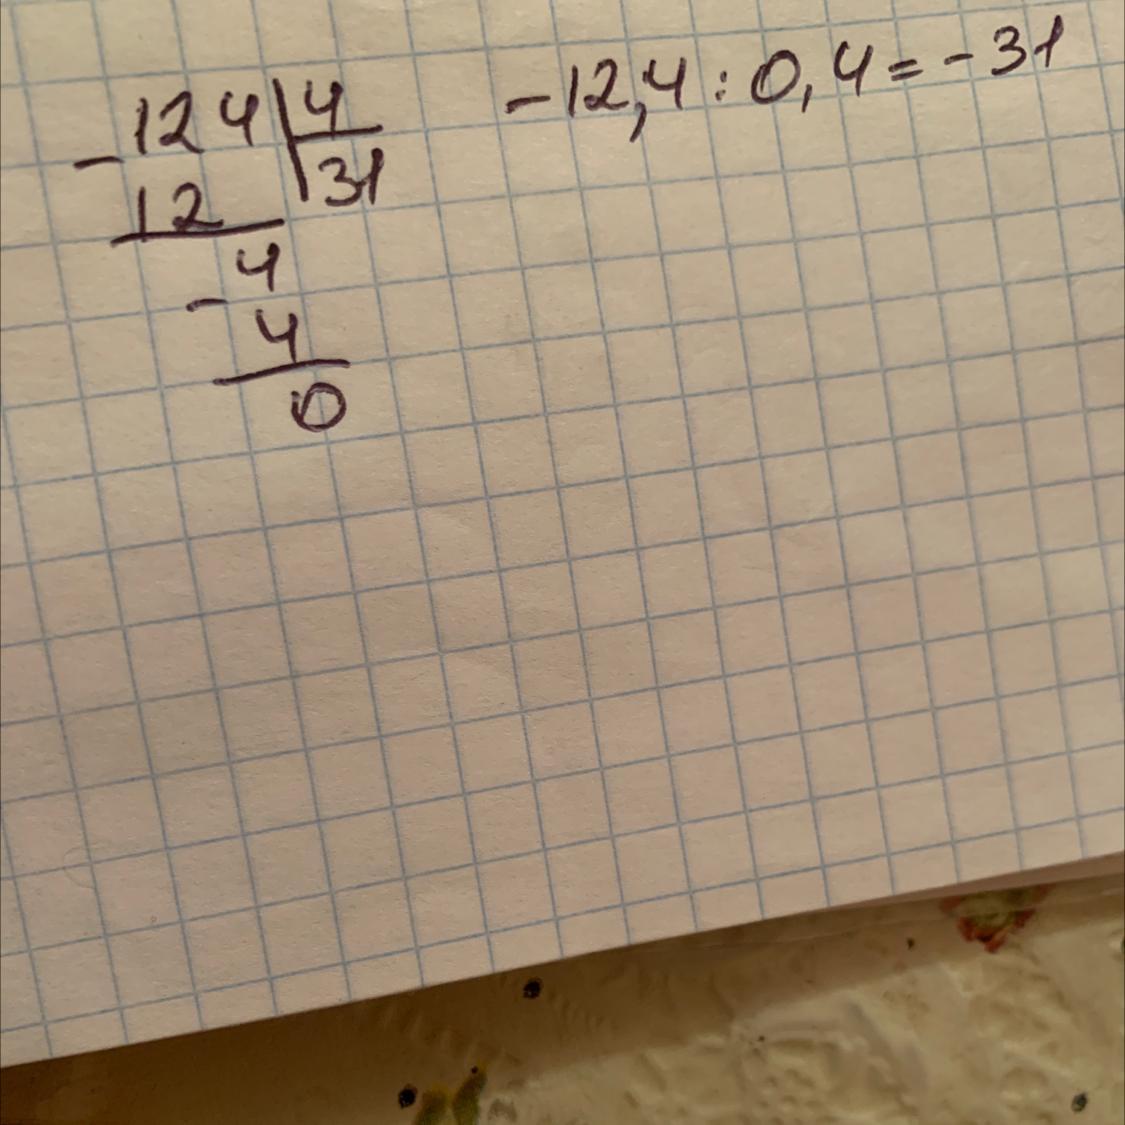 -124|4
12 31
4
-4
0
-12,4 : 0,4 = -31